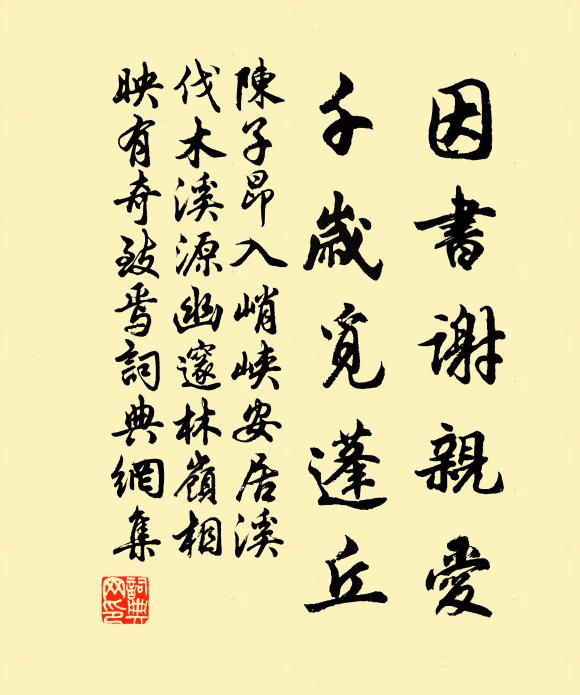 因書謝親愛
千歲覓蓬丘
陳子昂入峭峽安居溪
伐木溪源幽邃林嶺相
映有奇致焉詞典網集
詞典网印